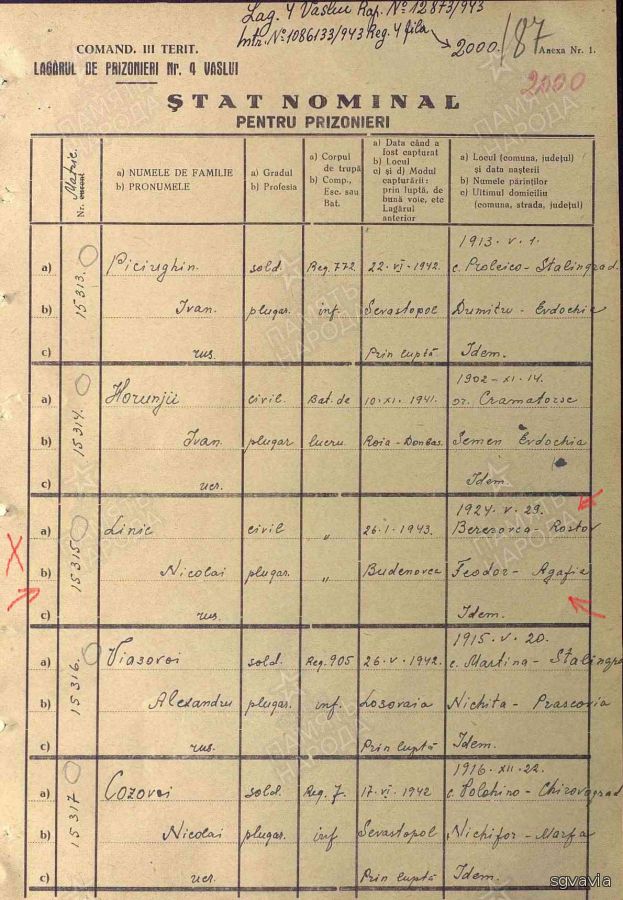 Lag. 4 Vaslui Rap. Nº 12873/943
Intr. Nº 1086133/943 Reg. 4 fila
2000
/87
Anexa Nr. 1.
2000
COMAND. III TERIT.
LAGĂRUL DE PRIZONIERI Nr. 4 VASLUI
ȘTAT NOMINAL
PENTRU PRIZONIERI
Nr. Matric.
a) NUMELE DE FAMILIE
b) PRONUMELE
a) Gradul
b) Profesia
a) Corpul de trupă
b) Comp., Esc. sau Bat.
a) Data când a fost capturat
b) Locul
c) și d) Modul capturării: prin luptă, de bună voie, etc Lagărul anterior
a) Locul (comuna, județul) și data nașterii
b) Numele părinților
c) Ultimul domiciliu (comuna, strada, județul)
1913. V. 1.
a) 15313. Picireghin. sold. Reg. 772. 22. VI. 1942. c. Proleico-Stalingrad.
b) Ivan. plugar. inf. Sevastopol Dumitru - Evdochia
c) rus. Prin luptă Idem.
1902 - XI. 14.
a) 15314. Horunjii civil. Bat. de 10. XI. 1941. or. Cramatorsc
b) Ivan. plugar lucru. Roia-Donbas. Semen Evdochia
c) ucr. Idem.
1924. V. 29.
a) 15315. Linic civil „ 26. I. 1943. Beresovca - Rostov
b) Nicolai plugar. „ Budenovca Feodor - Agafia
c) rus. Idem.
1915. V. 20.
a) 15316. Viasovoi sold. Reg. 905 26. V. 1942. c. Martina - Stalingra
b) Alexandru plugar. inf. Losovaia Nichita - Prascovia
c) rus. Prin luptă Idem.
1916. XII. 22.
a) 15317. Cozovoi sold. Reg. 7. 17. VI. 1942 c. Chirovograd
b) Nicolai plugar. inf Sevastopol Nichifor - Marfa
c) ucr. Prin luptă Idem.
ПАМЯТЬ НАРОДА
sgvavia